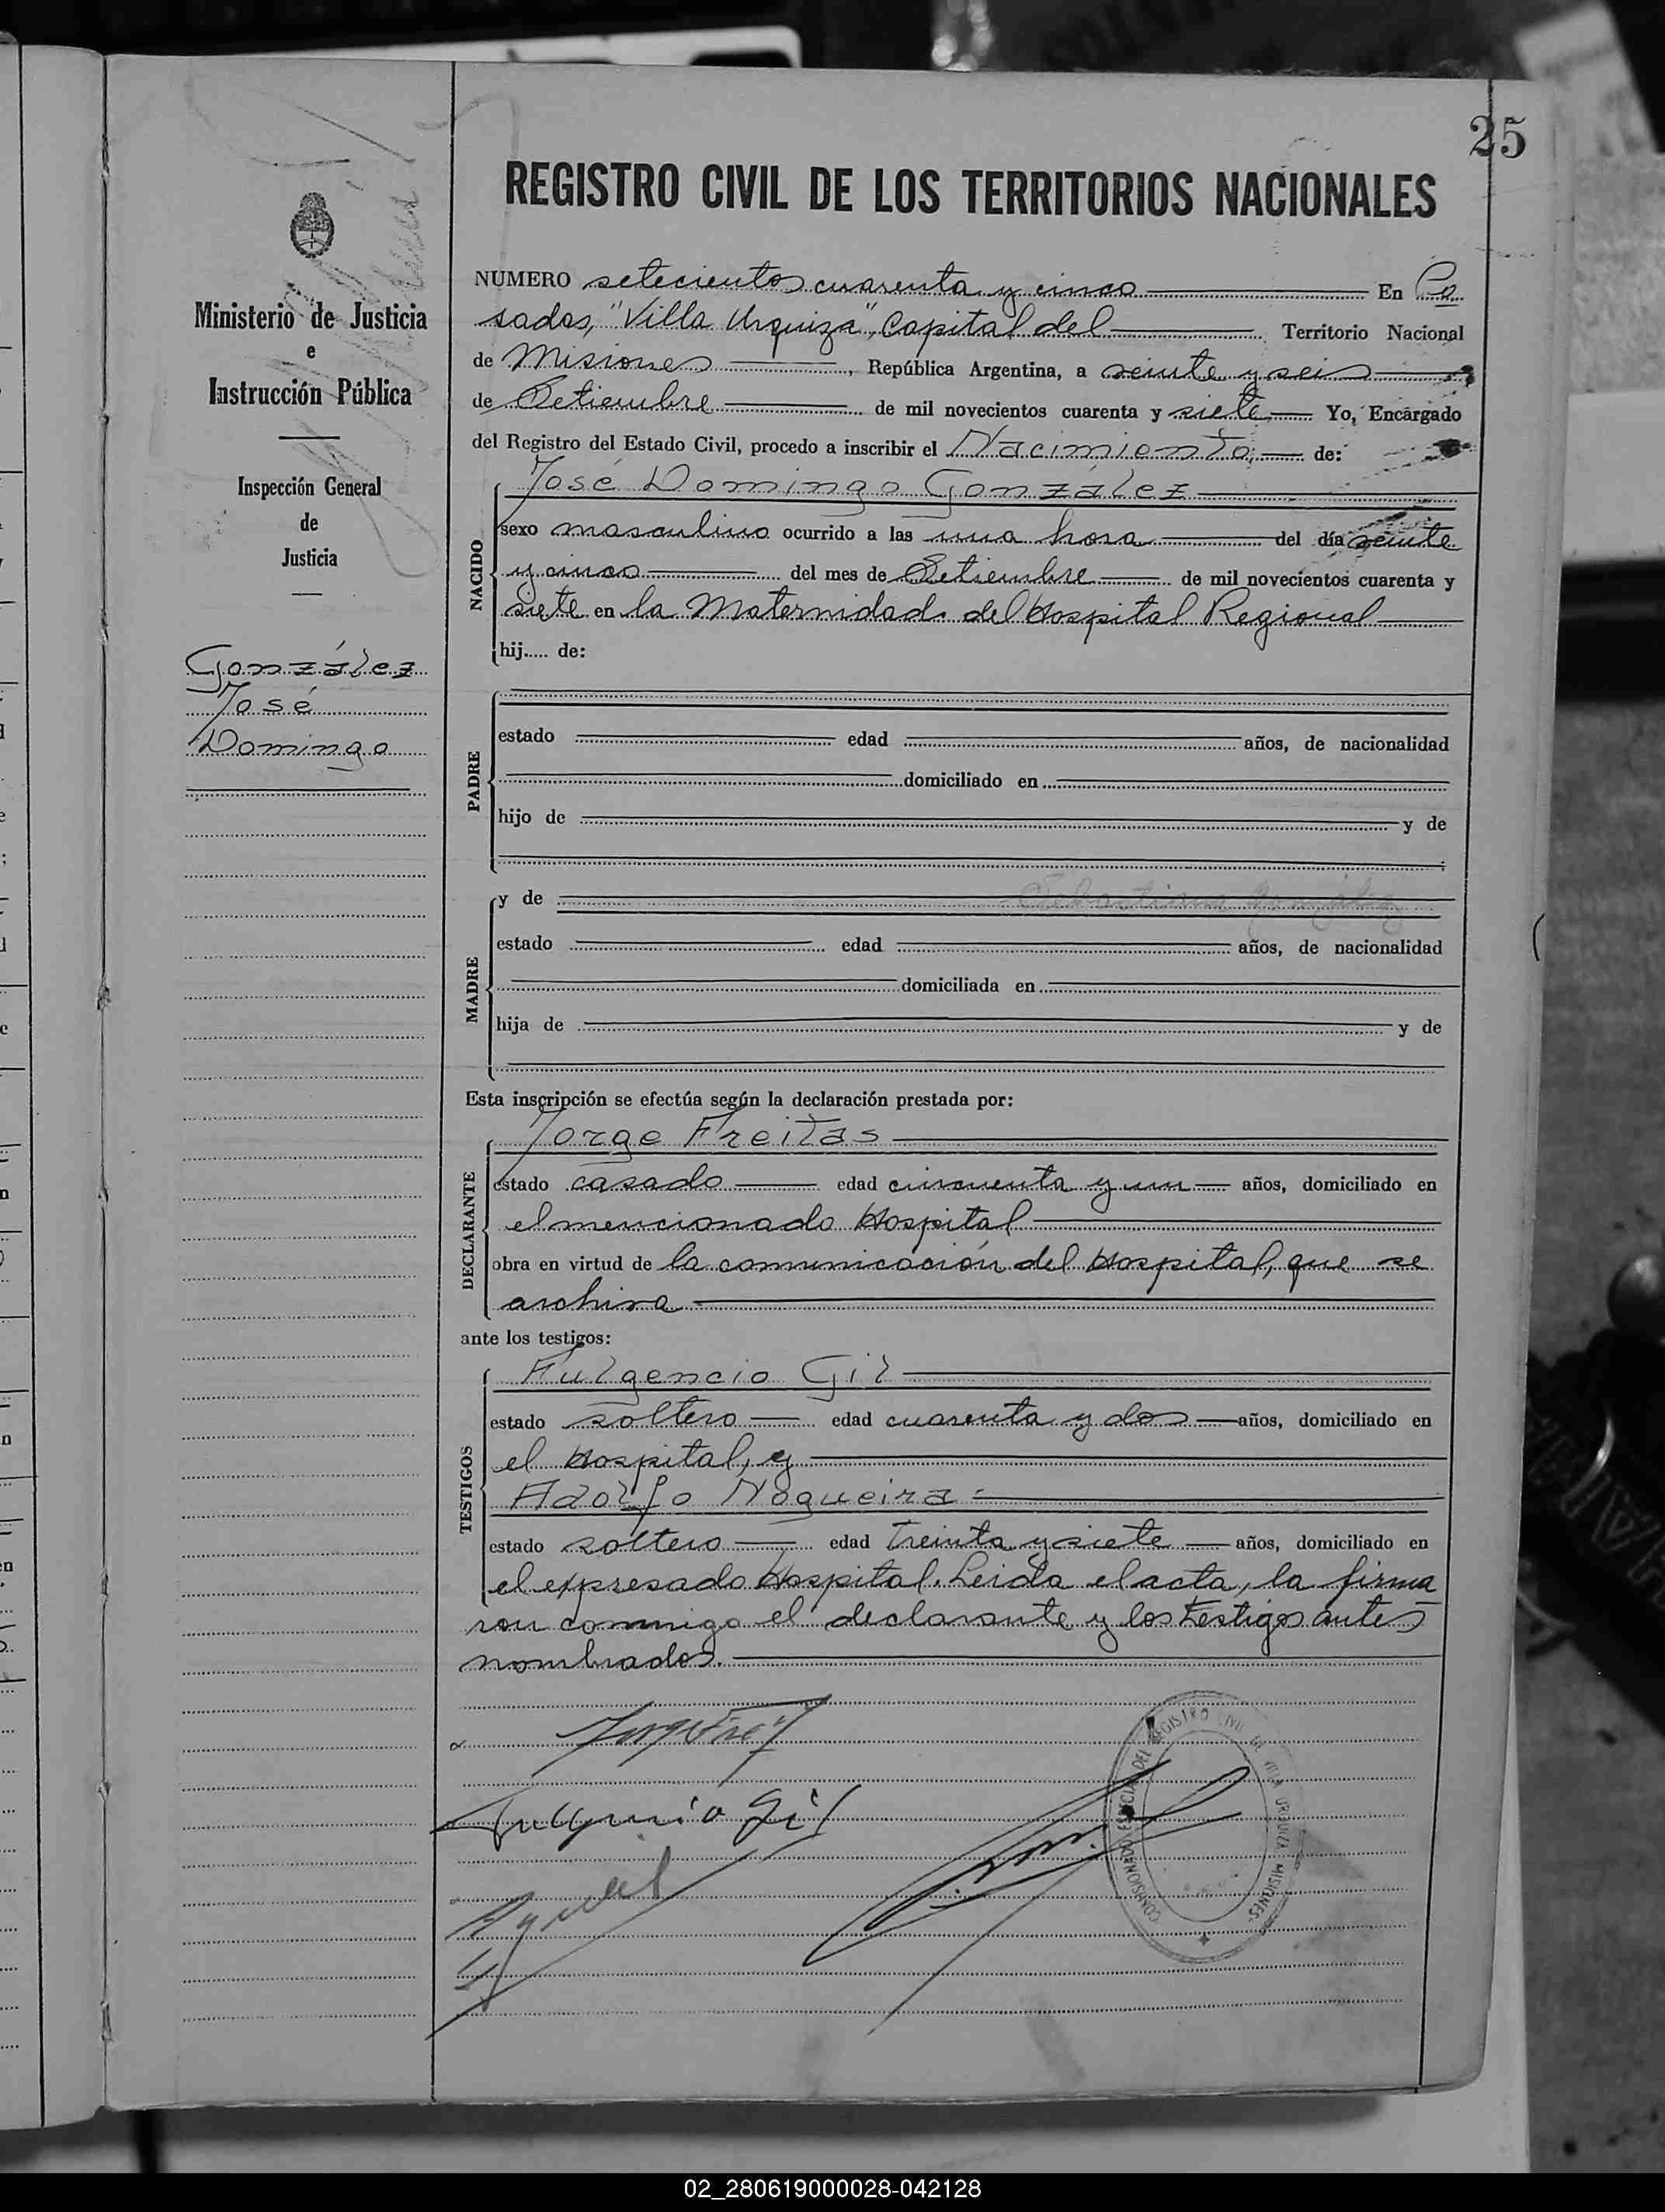 25
REGISTRO CIVIL DE LOS TERRITORIOS NACIONALES
Ministerio de Justicia
e
Instrucción Pública
Inspección General
de
Justicia
González
José
Domingo
NUMERO setecientos cuarenta y cinco En Po
sadas, "Villa Urquiza", Capital del Territorio Nacional
de Misiones, República Argentina, a veinte y seis
de Setiembre de mil novecientos cuarenta y siete Yo, Encargado
del Registro del Estado Civil, procedo a inscribir el Nacimiento de:
NACIDO
José Domingo González
sexo masculino ocurrido a las una hora del día veinte
y cinco del mes de Setiembre de mil novecientos cuarenta y
siete en la Maternidad del Hospital Regional
hij..... de:
PADRE
estado edad años, de nacionalidad
domiciliado en
hijo de y de
MADRE
y de Sebastiana González
estado edad años, de nacionalidad
domiciliada en
hija de y de
Esta inscripción se efectúa según la declaración prestada por:
DECLARANTE
Jorge Freitas
estado casado edad cincuenta y un años, domiciliado en
el mencionado Hospital
obra en virtud de la comunicación del Hospital, que se
archiva
ante los testigos:
TESTIGOS
Fulgencio Gil
estado soltero edad cuarenta y dos años, domiciliado en
el Hospital, y
Adolfo Nogueira
estado soltero edad treinta y siete años, domiciliado en
el expresado Hospital. Leida el acta, la firma
ron conmigo el declarante y los testigos antes
nombrados.
Fulgencio Gil
COMISIONADO ESPECIAL DEL REGISTRO CIVIL DE VILLA URQUIZA MISIONES-
02_280619000028-042128